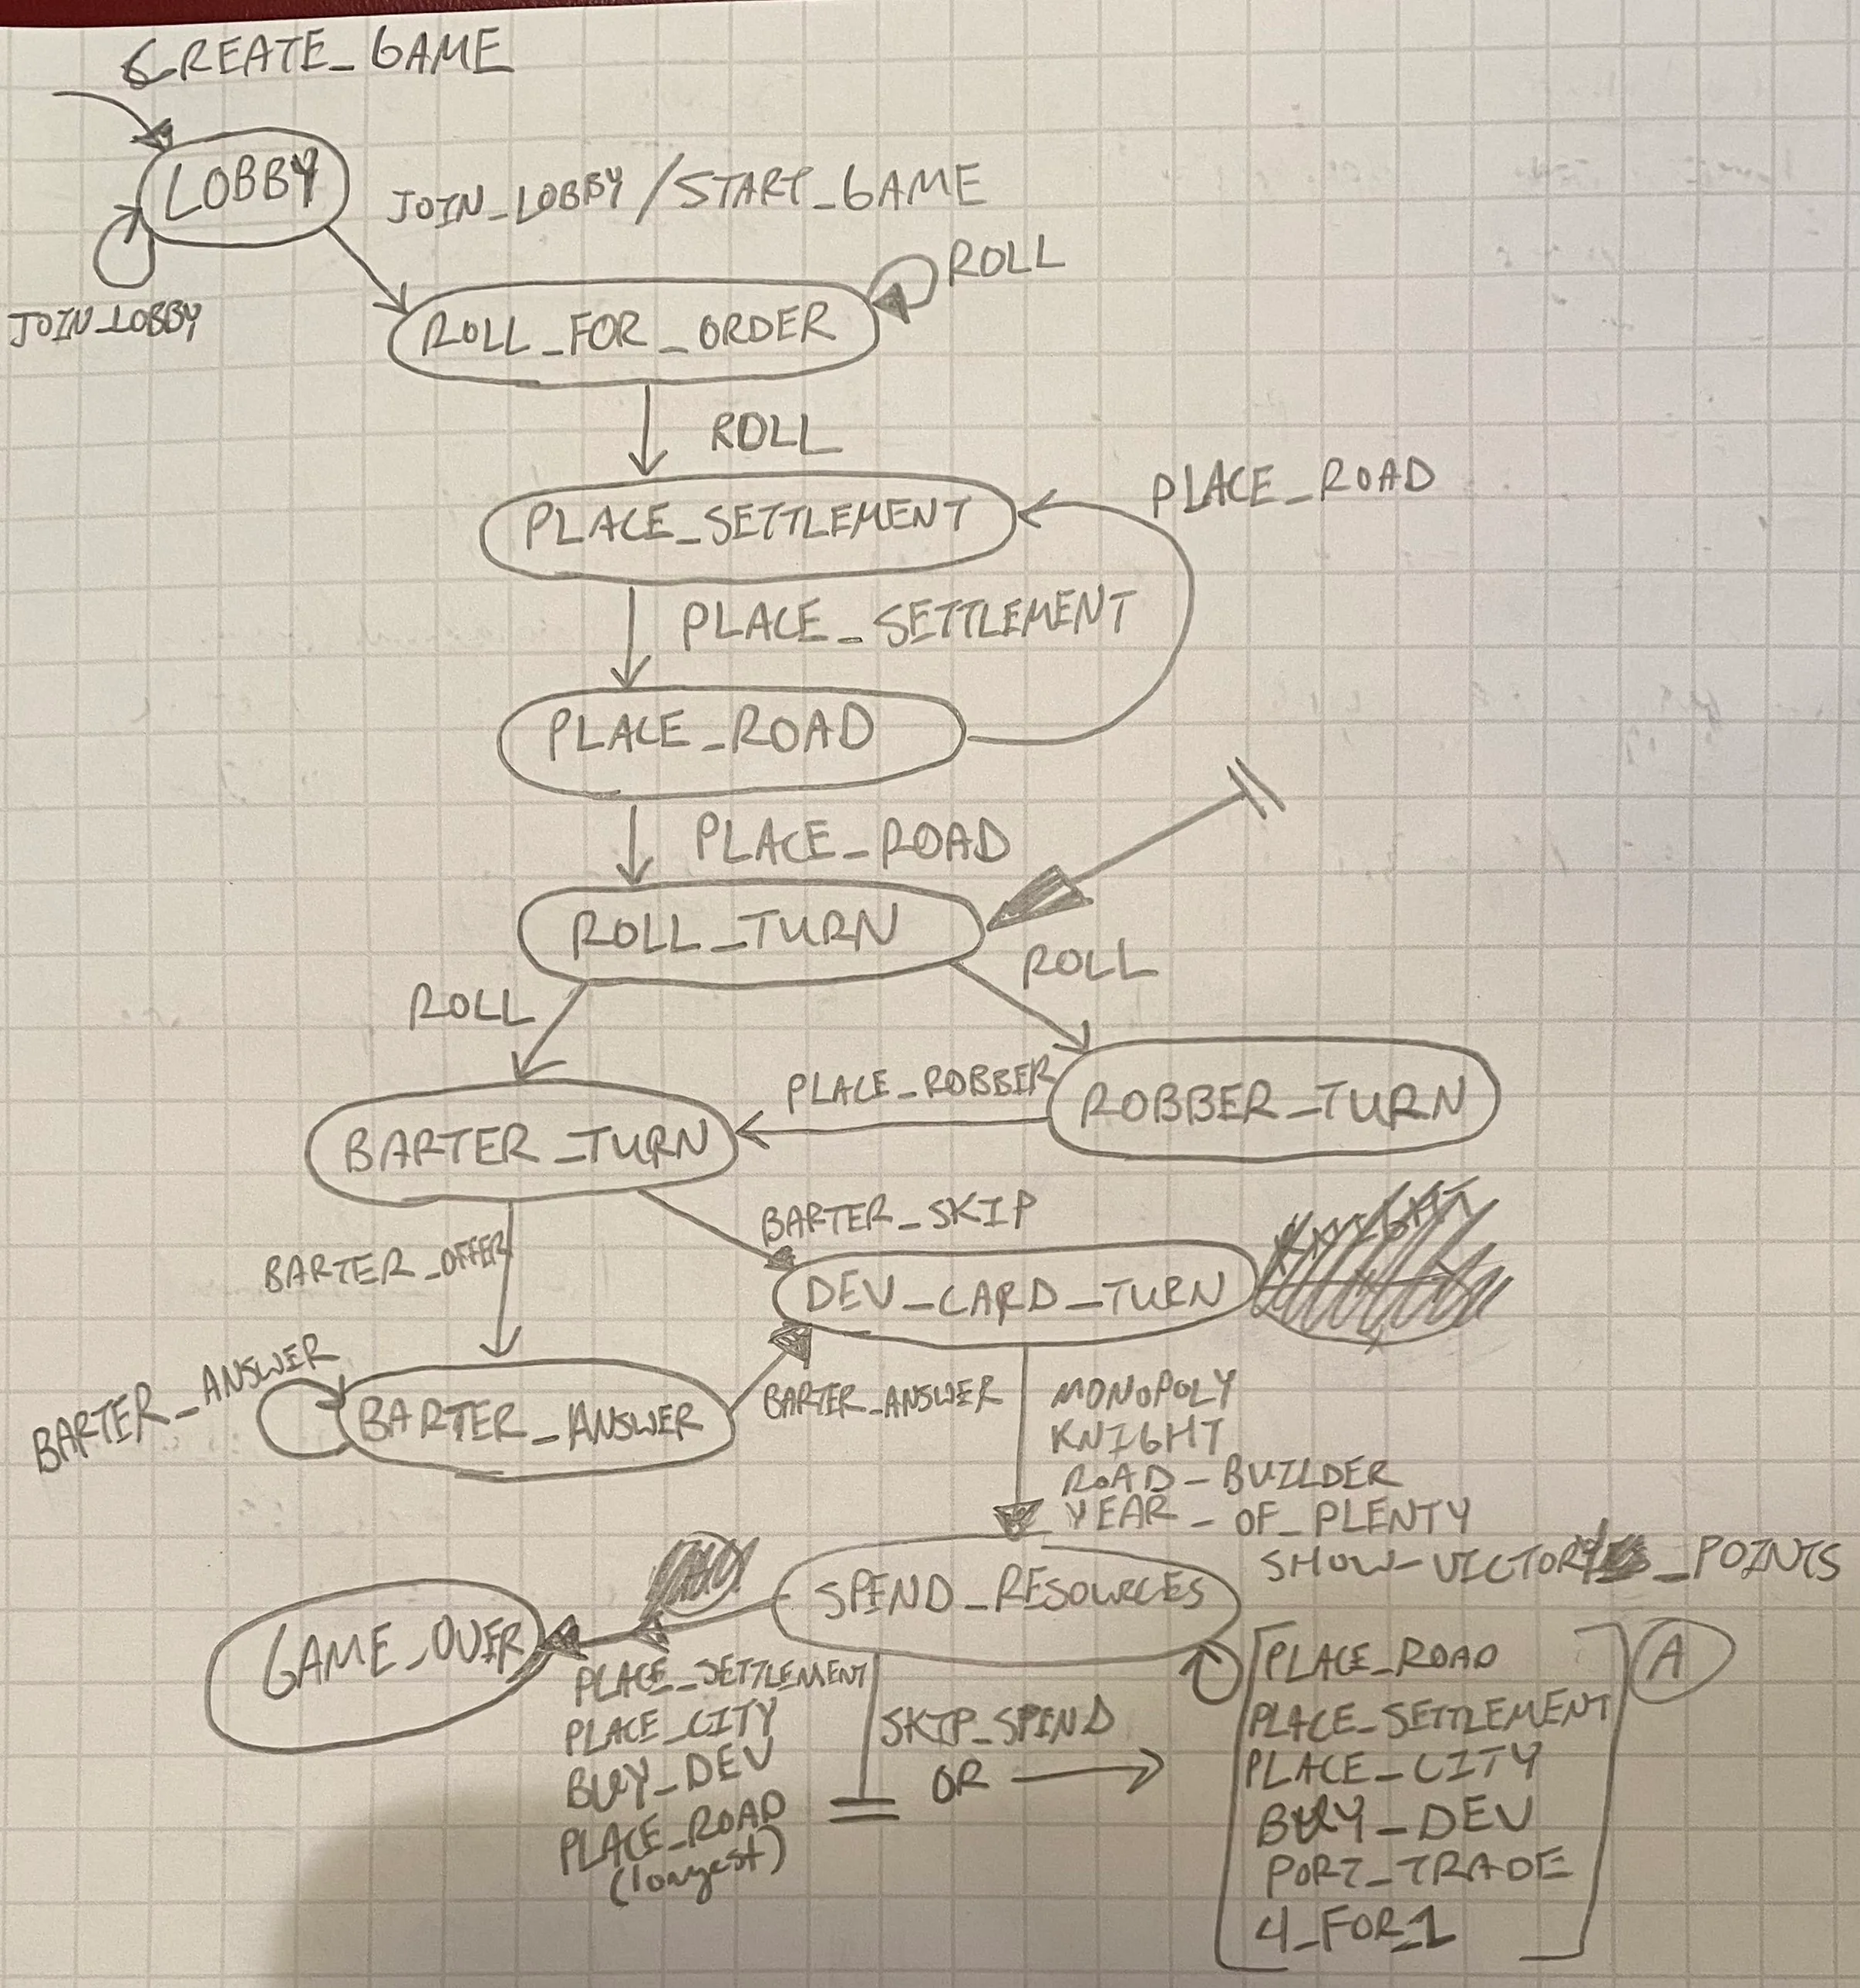 CREATE_GAME
LOBBY
JOIN_LOBBY / START_GAME
JOIN_LOBBY
ROLL
ROLL_FOR_ORDER
ROLL
PLACE_SETTLEMENT
PLACE_ROAD
PLACE_SETTLEMENT
PLACE_ROAD
PLACE_ROAD
ROLL_TURN
ROLL
ROLL
PLACE_ROBBER
ROBBER_TURN
BARTER_TURN
BARTER_SKIP
BARTER_OFFER
DEV_CARD_TURN
BARTER_ANSWER
BARTER_ANSWER
BARTER_ANSWER
MONOPOLY
KNIGHT
ROAD_BUILDER
YEAR_OF_PLENTY
SHOW_VICTORY_POINTS
SPEND_RESOURCES
GAME_OVER
PLACE_SETTLEMENT
PLACE_CITY
BUY_DEV
PLACE_ROAD
(longest)
SKIP_SPEND
OR
PLACE_ROAD
PLACE_SETTLEMENT
PLACE_CITY
BUY_DEV
PORT_TRADE
4_FOR_1
A